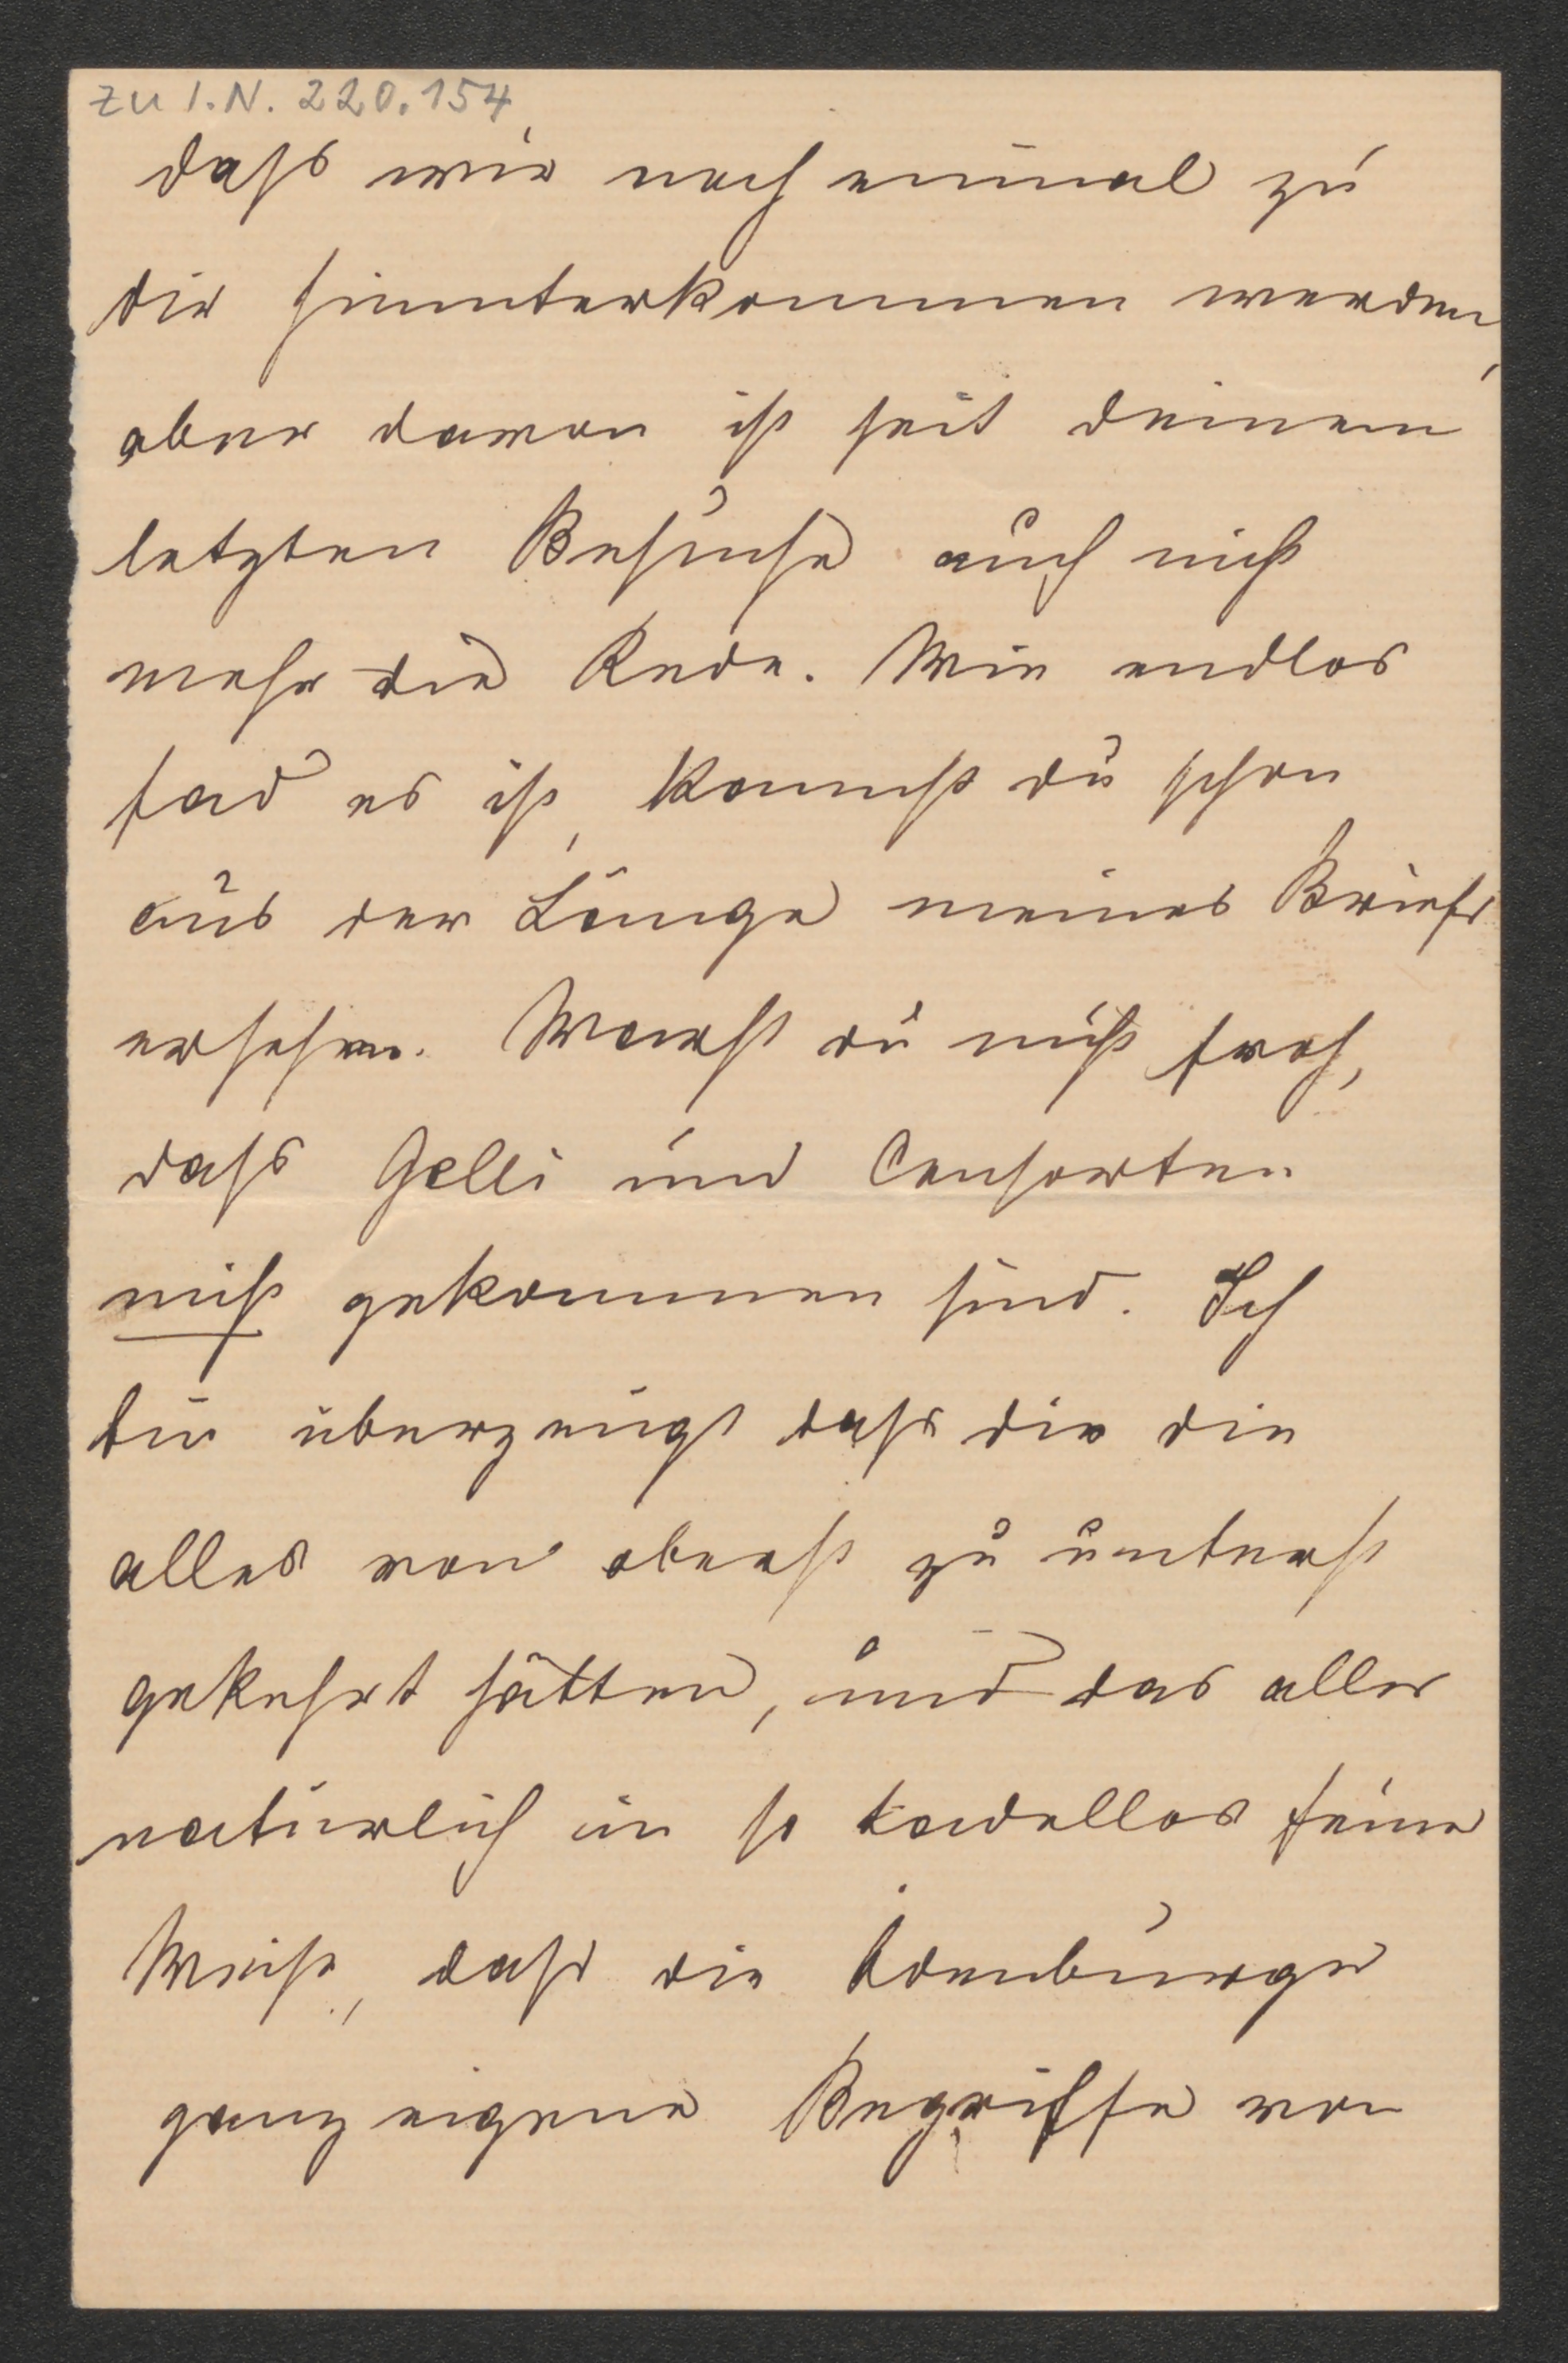 zu I.N. 220.154
dass wir noch einmal zu
dir hinunterkommen werden,
aber davon ist seit deinem
letzten Besuche auch nicht
mehr die Rede. Wie endlos
fad es ist, kannst du schon
aus der Länge meines Briefs
ersehen. Warst du nicht froh,
dass Gelli und Consorten
nicht gekommen sind. Ich
bin überzeugt dass dir die
alles von oberst zu unterst
gekehrt hätten, und das alles
natürlich in so tadellos feiner
Weise, dass die Ödenburger
ganz eigene Begriffe von